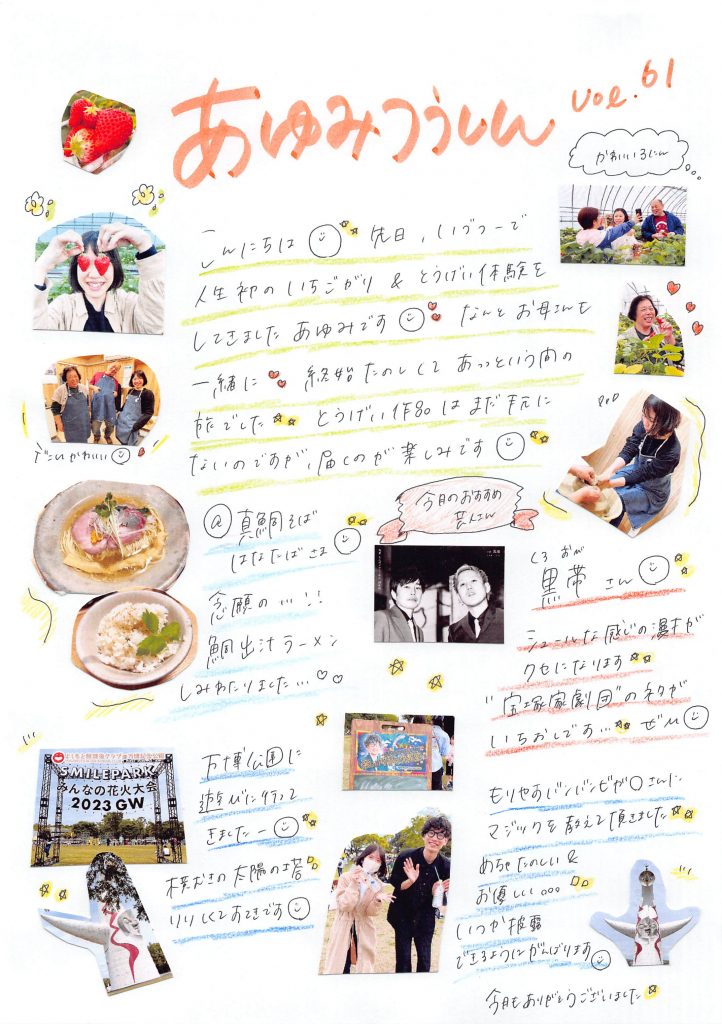 あゆみつうしん
vol.61
かわいい3にん
こんにちは 先日、いづつーで
人生初のいちごがり & とうげい体験を
してきました あゆみです なんとお母さんも
一緒に 終始たのしくて あっという間の
旅でした とうげい作品はまだ手元に
ないのですが、届くのが楽しみです
すごいかわいい
今月のおすすめ
芸人さん
@真鯛そば
はなたばさま
念願の…!!
鯛出汁ラーメン
しみわたりました…
くろ おび
黒帯 さん
シュールな感じの漫才が
クセになります
"宝塚歌劇団"のネタが
いちおしです… ぜひ
よしもと放課後クラブ@万博記念公園
SMILEPARK
みんなの花火大会
2023 GW
万博公園に
遊びに行って
きましたー
横むきの太陽の塔
りりしくてすてきです
もりやすバンバンビガロさんに
マジックを教えて頂きました
めちゃたのしい &
お優しい…
いつか披露
できるようにがんばります
今月もありがとうございました